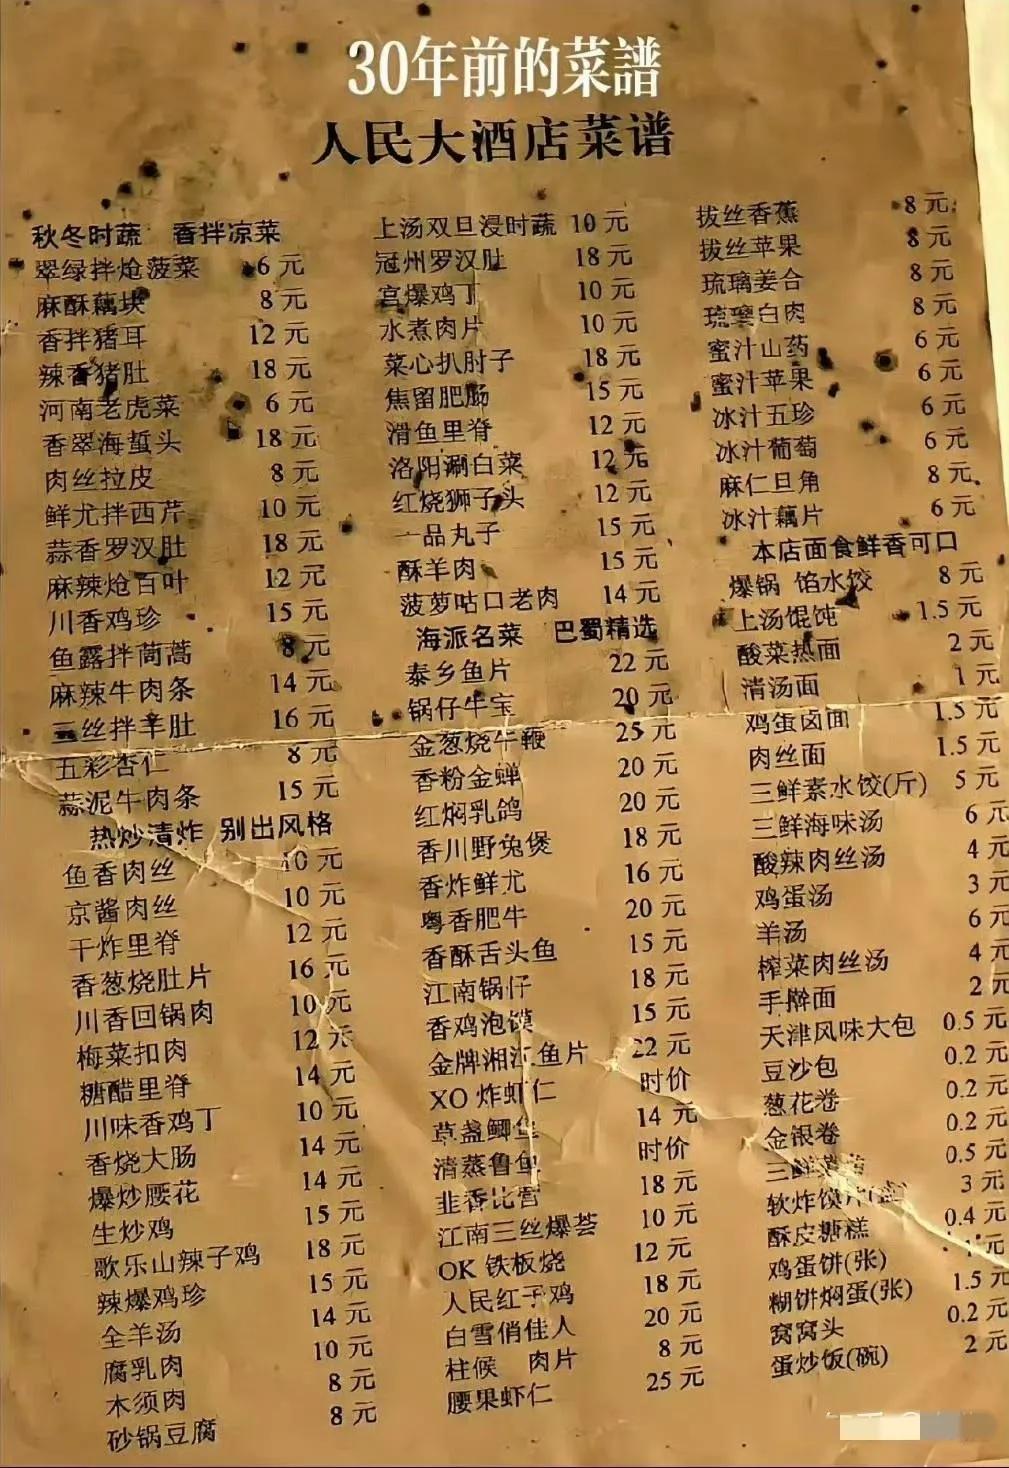 30年前的菜譜
人民大酒店菜谱
秋冬时蔬 香拌凉菜
翠绿拌炝菠菜 6元
麻酥藕块 8元
香拌猪耳 12元
辣香猪肚 18元
河南老虎菜 6元
香翠海蜇头 18元
肉丝拉皮 8元
鲜尤拌西芹 10元
蒜香罗汉肚 18元
麻辣炝百叶 12元
川香鸡珍 15元
鱼露拌茼蒿 8元
麻辣牛肉条 14元
三丝拌羊肚 16元
五彩杏仁 8元
蒜泥牛肉条 15元
热炒清炸 别出风格
鱼香肉丝 10元
京酱肉丝 10元
干炸里脊 12元
香葱烧肚片 16元
川香回锅肉 10元
梅菜扣肉 12元
糖醋里脊 14元
川味香鸡丁 10元
香烧大肠 14元
爆炒腰花 14元
生炒鸡 15元
歌乐山辣子鸡 18元
辣爆鸡珍 15元
全羊汤 14元
腐乳肉 10元
木须肉 8元
砂锅豆腐 8元
上汤双旦浸时蔬 10元
冠州罗汉肚 18元
宫爆鸡丁 10元
水煮肉片 10元
菜心扒肘子 18元
焦留肥肠 15元
滑鱼里脊 12元
洛阳涮白菜 12元
红烧狮子头 12元
一品丸子 15元
酥羊肉 15元
菠萝咕口老肉 14元
海派名菜 巴蜀精选
泰乡鱼片 22元
锅仔牛宝 20元
金葱烧牛鞭 25元
香粉金蝉 20元
红焖乳鸽 20元
香川野兔煲 18元
香炸鲜尤 16元
粤香肥牛 20元
香酥舌头鱼 15元
江南锅仔 18元
香鸡泡馍 15元
金牌湘江鱼片 22元
XO炸虾仁 时价
草盏鲫鱼 14元
清蒸鲁鱼 时价
韭香比营 18元
江南三丝爆荟 10元
OK铁板烧 12元
人民红子鸡 18元
白雪俏佳人 20元
柱候 肉片 8元
腰果虾仁 25元
拔丝香蕉 8元
拔丝苹果 8元
琉璃姜合 8元
琉璃白肉 8元
蜜汁山药 6元
蜜汁苹果 6元
冰汁五珍 6元
冰汁葡萄 6元
麻仁旦角 8元
冰汁藕片 6元
本店面食鲜香可口
爆锅 馅水饺 8元
上汤馄饨 1.5元
酸菜热面 2元
清汤面 1元
鸡蛋卤面 1.5元
肉丝面 1.5元
三鲜素水饺(斤) 5元
三鲜海味汤 6元
酸辣肉丝汤 4元
鸡蛋汤 3元
羊汤 6元
榨菜肉丝汤 4元
手擀面 2元
天津风味大包 0.5元
豆沙包 0.2元
葱花卷 0.2元
金银卷 0.2元
三鲜 0.5元
软炸馍片 3元
酥皮糖糕 0.4元
鸡蛋饼(张) 元
糊饼焖蛋(张) 1.5元
窝窝头 0.2元
蛋炒饭(碗) 2元